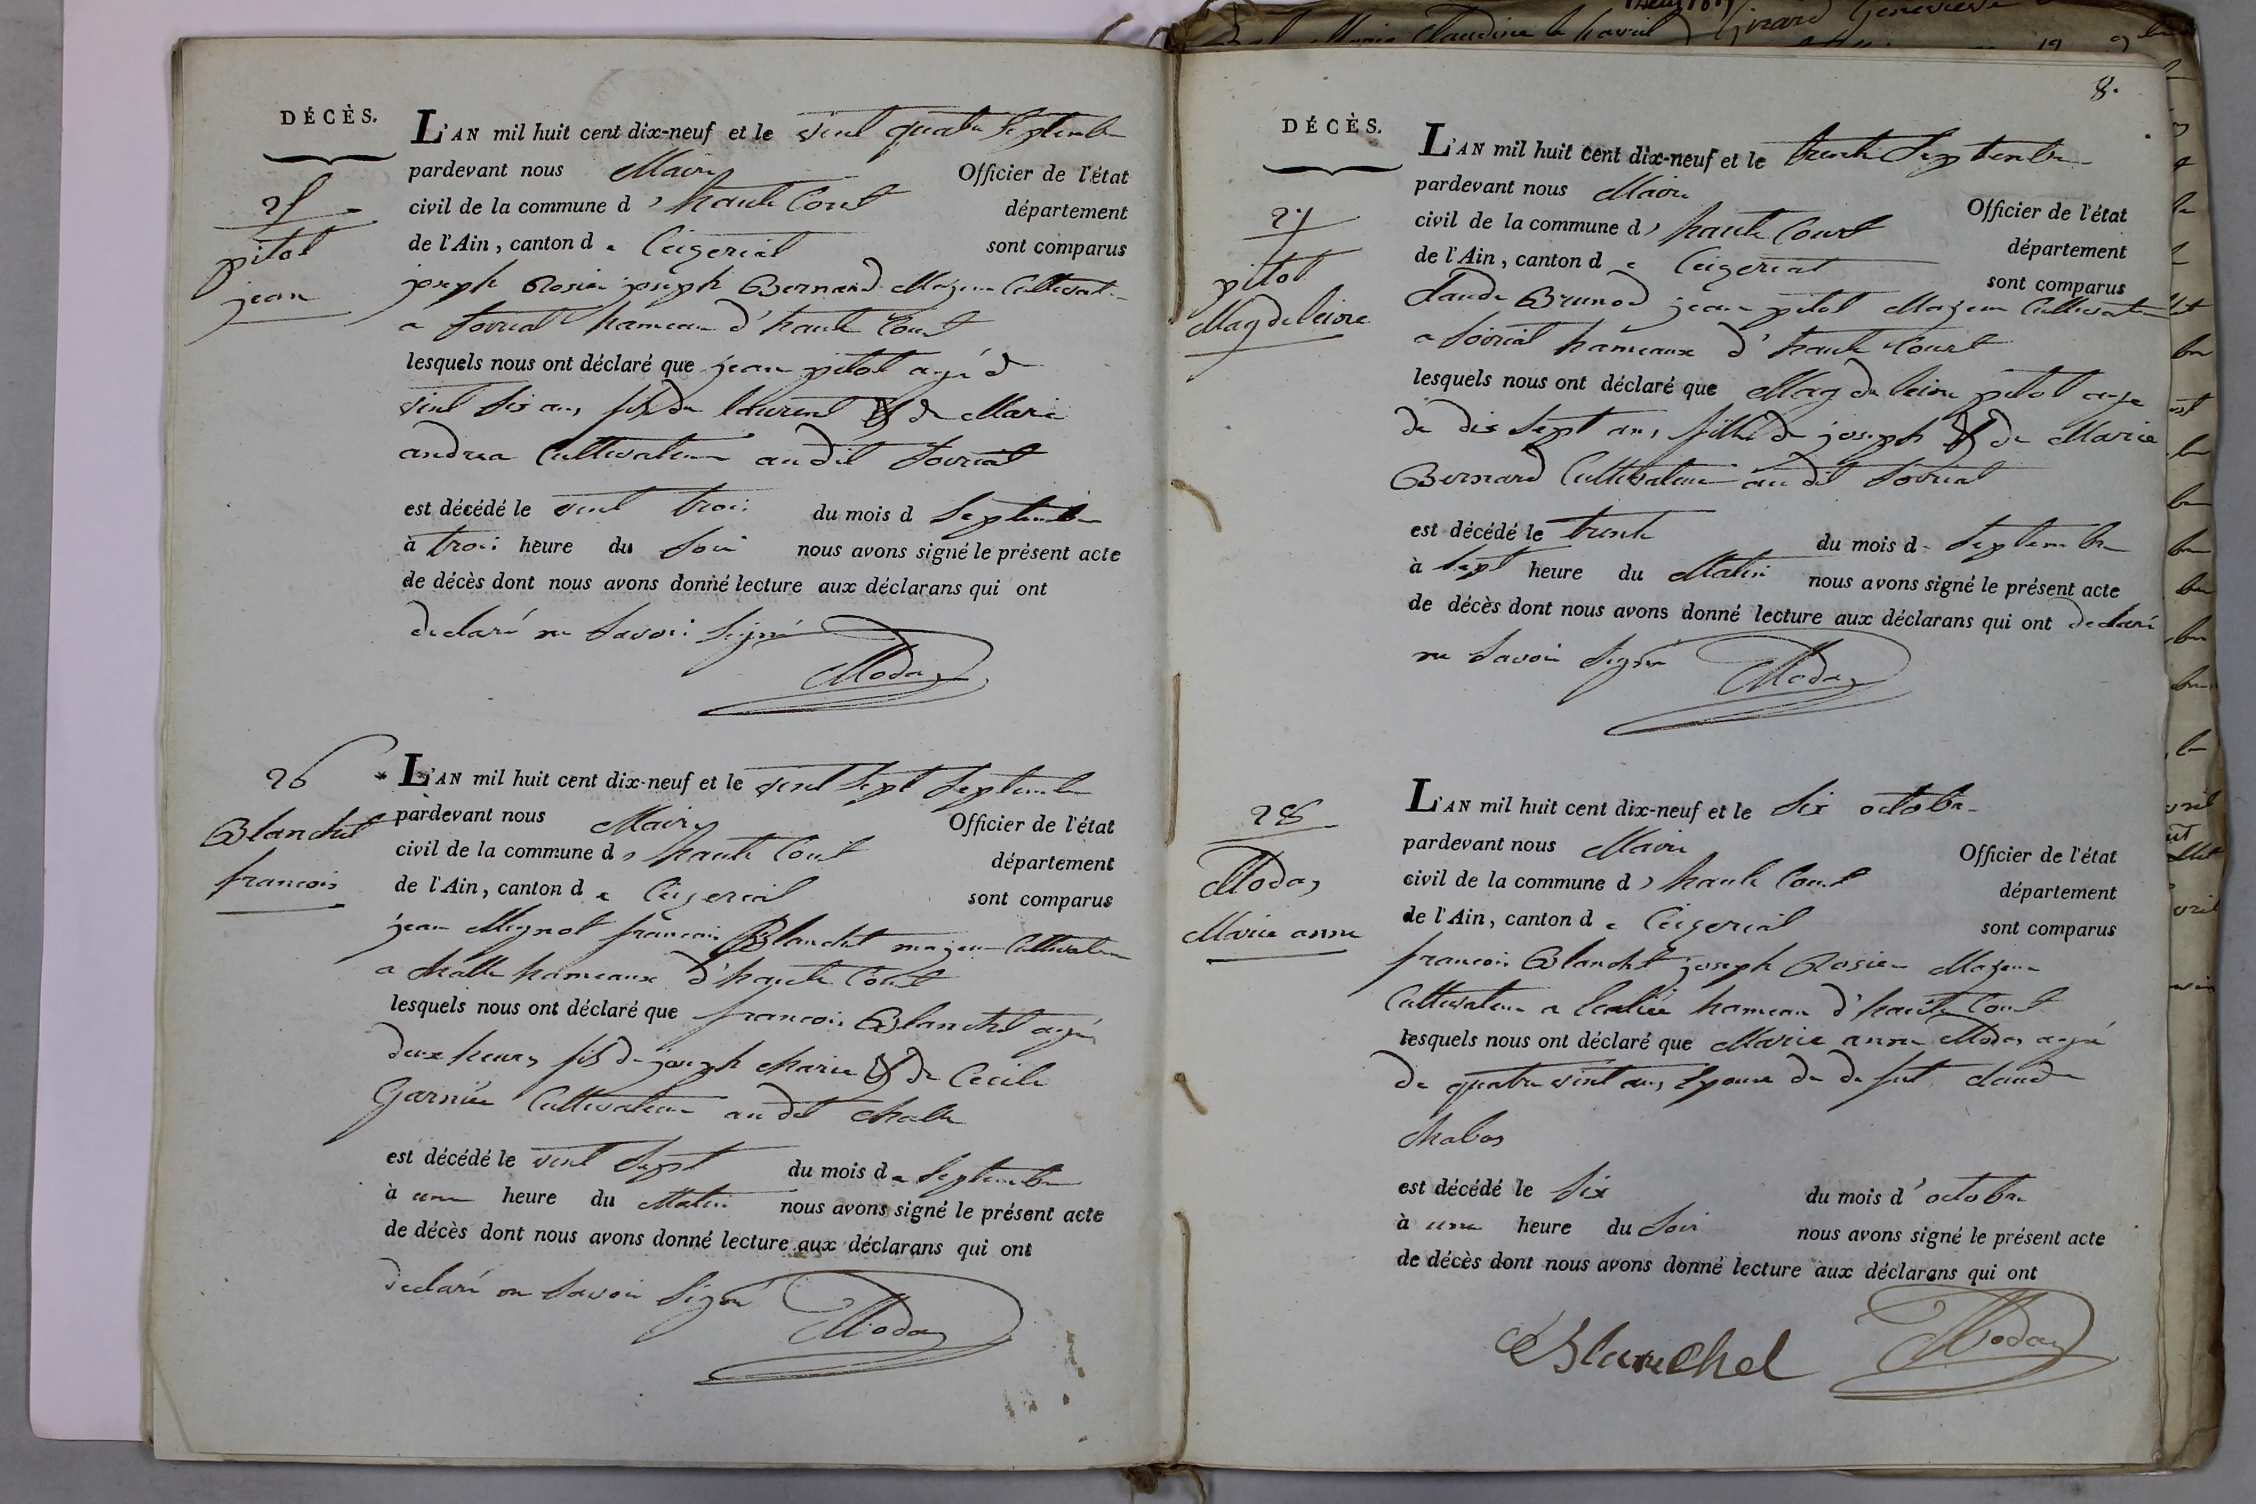 DÉCÈS.
25
pitol
jean
L'AN mil huit cent dix-neuf et le vint quatre Septembre
pardevant nous Maire Officier de l'état
civil de la commune d' haute Court département
de l'Ain, canton de Ceizeriat sont comparus
joseph Rosier joseph Bernard Majeur Cultivat
a Sovriat hameau d'haute Court
lesquels nous ont déclaré que jean pitol agé de
vint six ans fils de laurent & de Marie
andrea Cultivateur audit Sovriat
est décédé le vint trois du mois d Septembre
à trois heure du Soir nous avons signé le présent acte
de décès dont nous avons donné lecture aux déclarans qui ont
declaré ne Savoir Signé
Modas
26
Blanchet
francois
L'AN mil huit cent dix-neuf et le vint Sept Septembre
pardevant nous Maire Officier de l'état
civil de la commune d' haute Court département
de l'Ain, canton de Ceizeriat sont comparus
jean Mignot francois Blanchet majeur Cultivateur
a Challe hameaux d'haute Court
lesquels nous ont déclaré que francois Blanchet agé
deux heures fils de joseph Marie & de Cecile
Garnier Cultivateur audit Challe
est décédé le vint Sept du mois de Septembre
à une heure du Matin nous avons signé le présent acte
de décès dont nous avons donné lecture aux déclarans qui ont
declaré ne Savoir Signé
Modas
8.
DÉCÈS.
27
pitol
Magdeleine
L'AN mil huit cent dix-neuf et le trente Septembre
pardevant nous Maire Officier de l'état
civil de la commune d' haute Court département
de l'Ain, canton de Ceizeriat sont comparus
Claude Brunod jean pitol Majeur Cultivateur
a Sovriat hameaux d'haute Court
lesquels nous ont déclaré que Magdeleine pitol age
de dix Sept ans, fille de joseph & de Marie
Bernard Cultivateur audit Sovriat
est décédé le trente du mois de Septembre
à Sept heure du Matin nous avons signé le présent acte
de décès dont nous avons donné lecture aux déclarans qui ont declaré
ne Savoir Signé
Modas
28
Modas
Marie anne
L'AN mil huit cent dix-neuf et le Six octobre
pardevant nous Maire Officier de l'état
civil de la commune d' haute Court département
de l'Ain, canton de Ceizeriat sont comparus
francois Blanchet joseph Rosier Majeur
Cultivateur a hameau d'haute Court
lesquels nous ont déclaré que Marie anne Modas agé
de quatre vint ans, Epouse de defut Claude
Chabas
est décédé le Six du mois d'octobre
à une heure du Soir nous avons signé le présent acte
de décès dont nous avons donné lecture aux déclarans qui ont
Blanchel
Modas